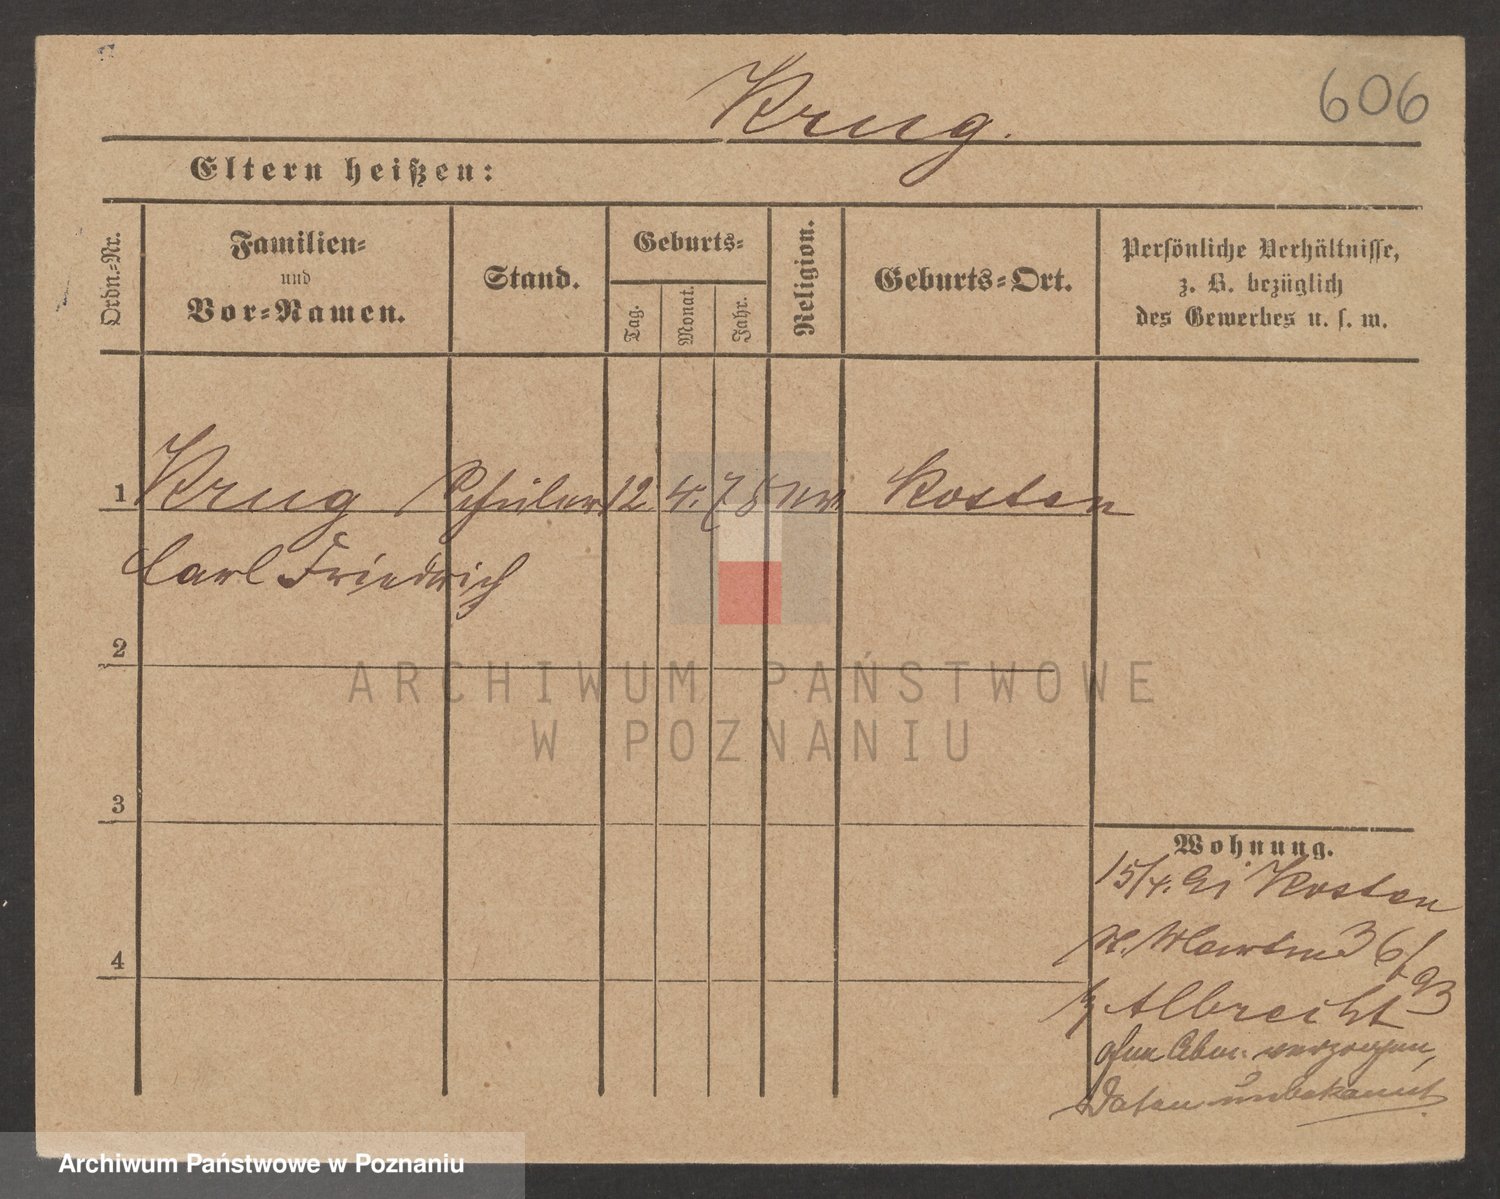 Krug.
606
Eltern heißen:
Ordn.-Nr.
Familien-
und
Vor-Namen.
Stand.
Geburts-
Tag.
Monat.
Jahr.
Religion.
Geburts-Ort.
Persönliche Verhältnisse,
z. B. bezüglich
des Gewerbes u. s. w.
1 Krug Schüler 12 4. 78 Kosten
Carl Friedrich
2
ARCHIWUM PAŃSTWOWE
W POZNANIU
3
Wohnung.
15/4. Kosten
St. Martin 36
93
b/ Albrecht
ohne Abm. verzogen,
Daten unbekannt
4
Archiwum Państwowe w Poznaniu